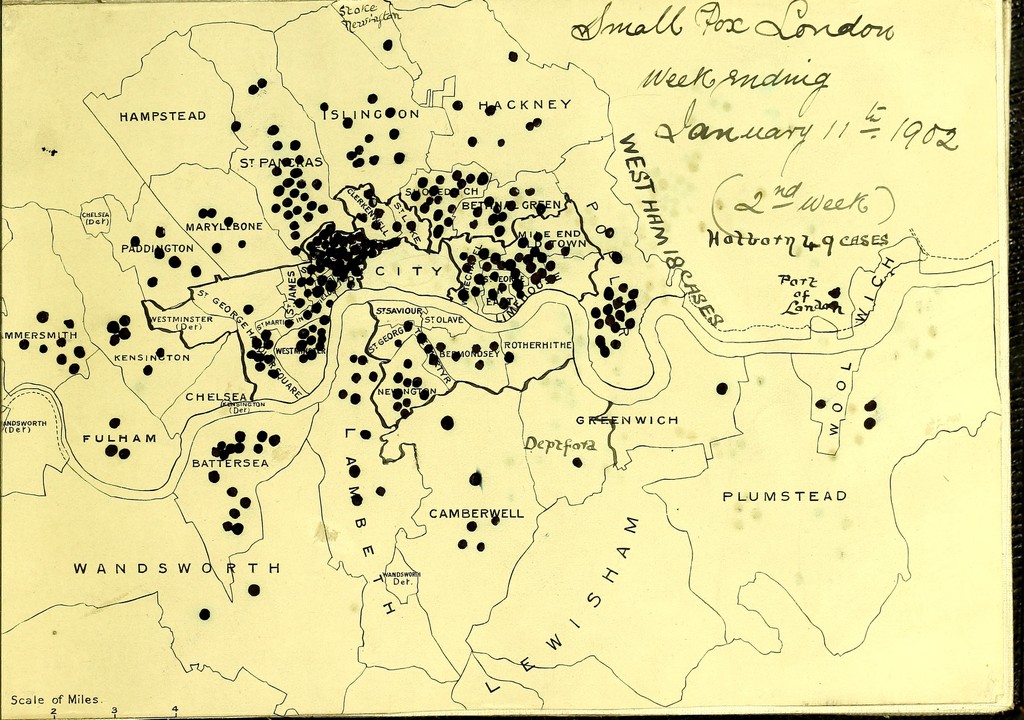 Stoke
Newington
Small Pox London
Week ending
January 11th. 1902
(2nd week)
Holborn 49 CASES
WEST HAM 18 CASES
Port
of
London
HAMPSTEAD
ISLINGTON
HACKNEY
ST PANCRAS
CHELSEA
(Det)
MARYLEBONE
PADDINGTON
CLERKENWELL
ST LUKE
SHOREDITCH
BETHNAL GREEN
MILE END
OLD TOWN
POPLAR
CITY
ST GEORGE
EAST
LIMEHOUSE
ST JAMES
ST MARTIN
ST GEORGE HANOVER SQUARE
WESTMINSTER
(Det)
WESTMINSTER
ST SAVIOUR
ST OLAVE
ST GEORGE
BERMONDSEY
ROTHERHITHE
NEWINGTON
HAMMERSMITH
KENSINGTON
CHELSEA
KENSINGTON
(Det)
WANDSWORTH
(Det)
FULHAM
BATTERSEA
GREENWICH
Deptford
WOOLWICH
LAMBETH
CAMBERWELL
PLUMSTEAD
WANDSWORTH
WANDSWORTH
Det.
LEWISHAM
Scale of Miles.
2 3 4